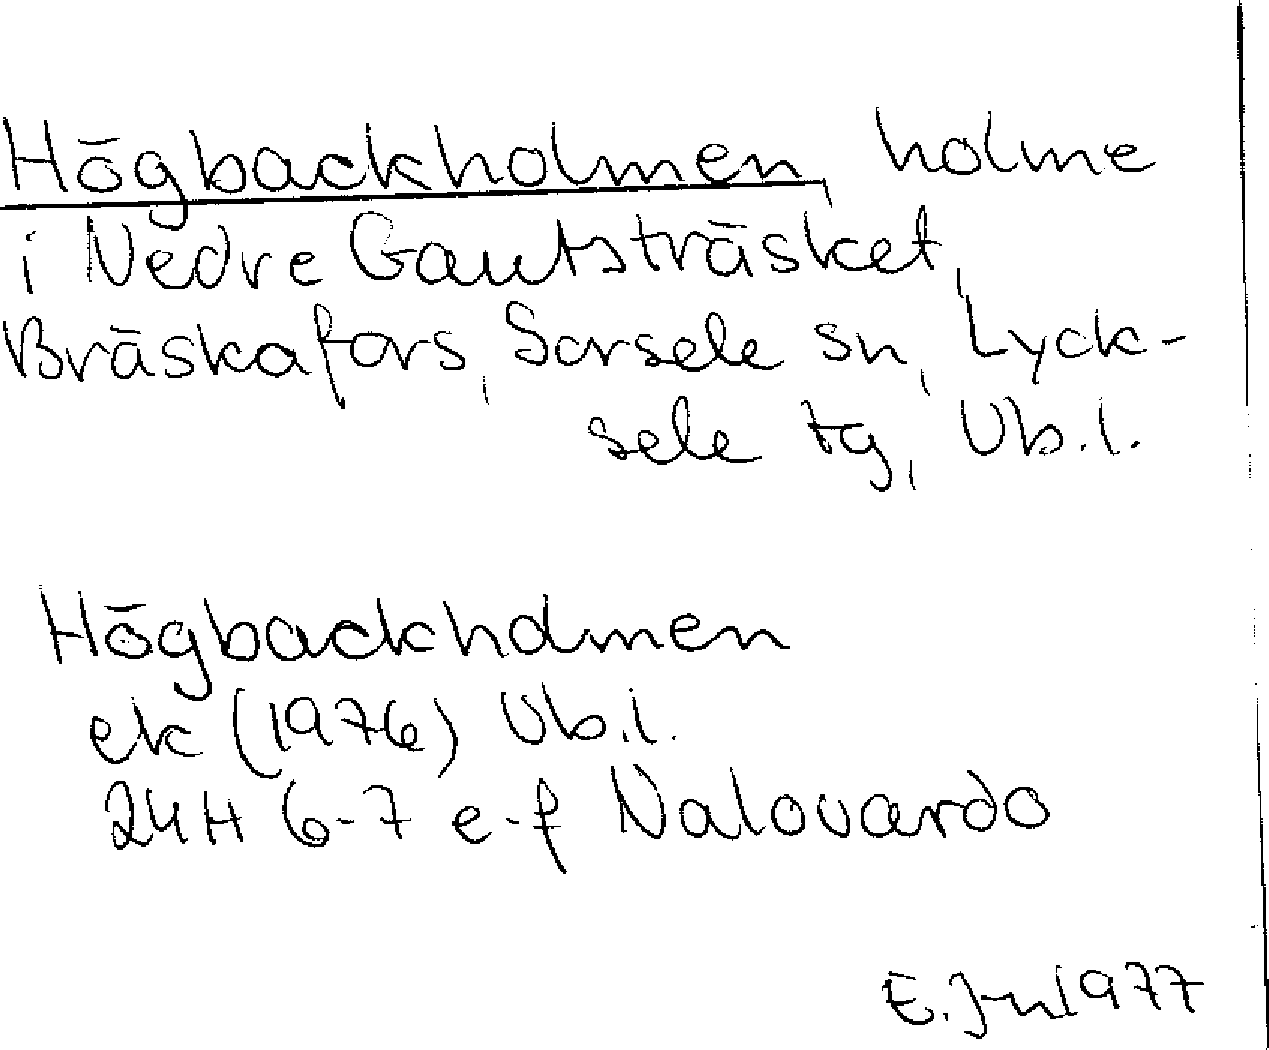 Högbackholmen, holme
i Nedre Gautsträsket,
Bräskafors, Sorsele sn, Lyck-
sele tg, Vb.l.
Högbackholmen
ek (1976) Vb.l.
24H 6-7 e-f Nalovardo
E. 1977